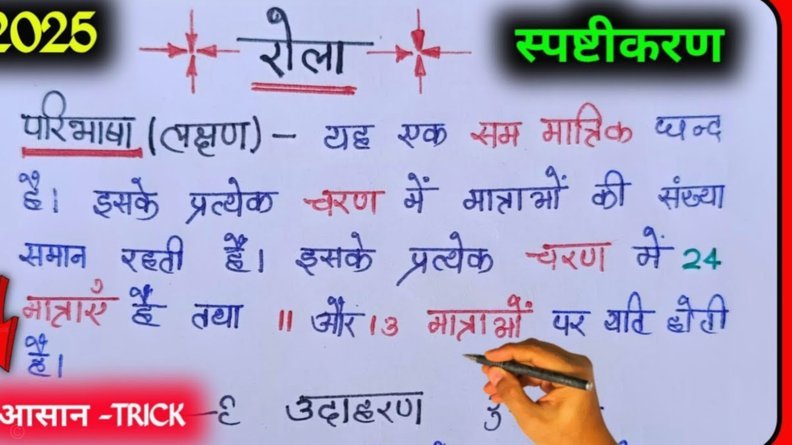 2025
रोला
स्पष्टीकरण
परिभाषा (लक्षण) - यह एक सम मात्रिक छन्द
है। इसके प्रत्येक चरण में मात्राओं की संख्या
समान रहती है। इसके प्रत्येक चरण में 24
मात्राएँ है तथा 11 और 13 मात्राओं पर यति होती
है।
आसान -TRICK
उदाहरण